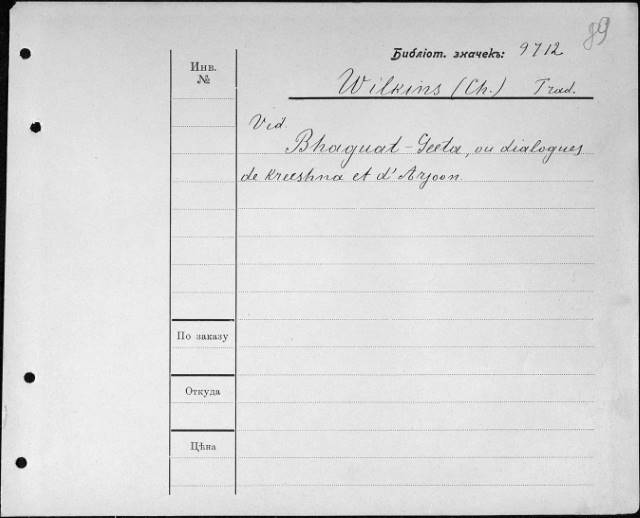 89
Библіот. значекъ: 9712
Инв.
№
Wilkins (Ch.) Trad.
Vid.
Bhaguat-Geeta, ou dialogues
de Kreeshna et d'Arjoon.
По заказу
Откуда
Цѣна